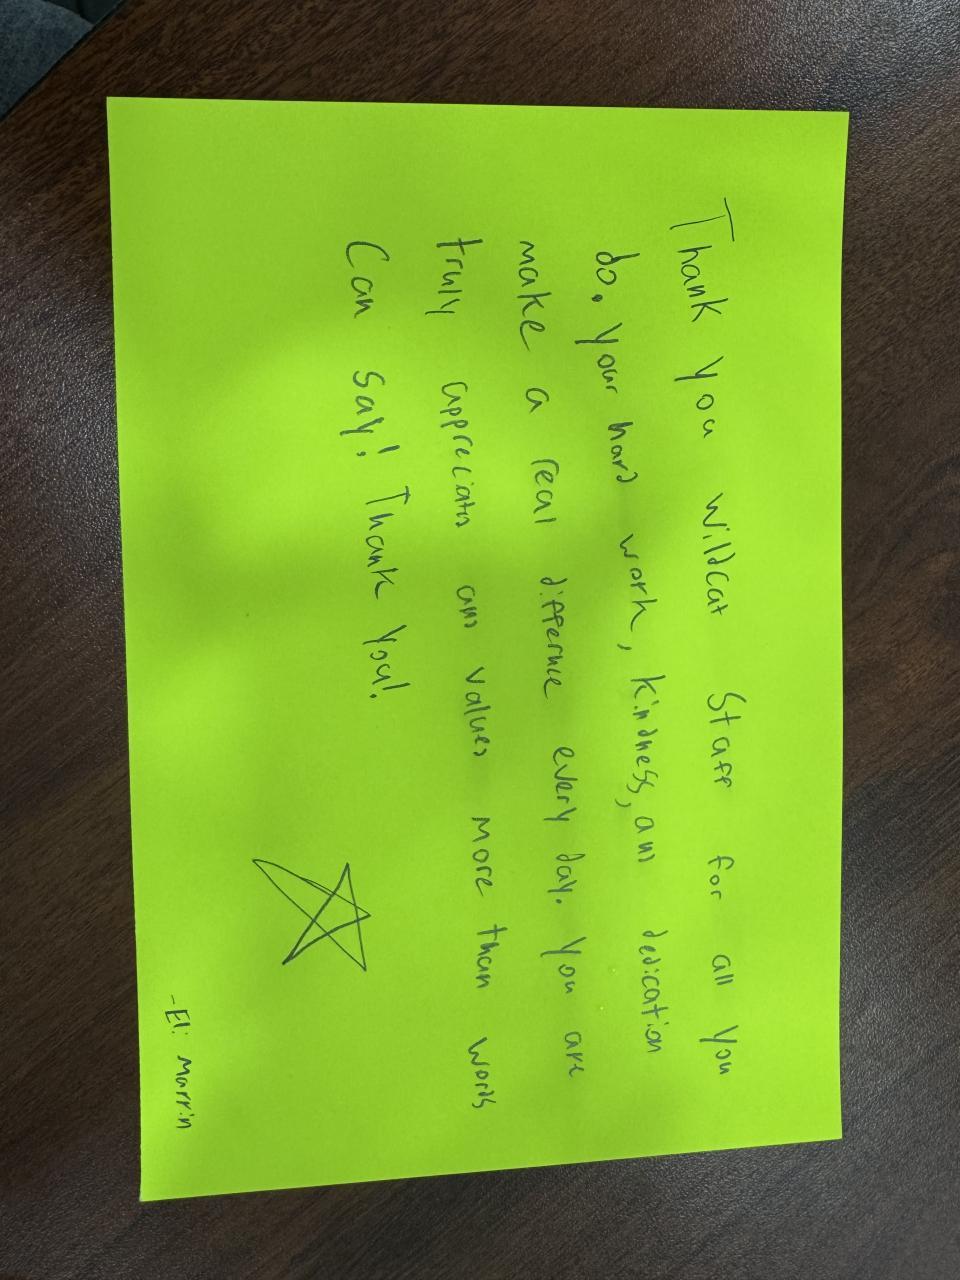 Thank you wildcat Staff for all you
do. Your hard work, kindness, and dedication
make a real difference every day. You are
truly appreciated and valued more than words
Can say! Thank You!
-Eli Marrin